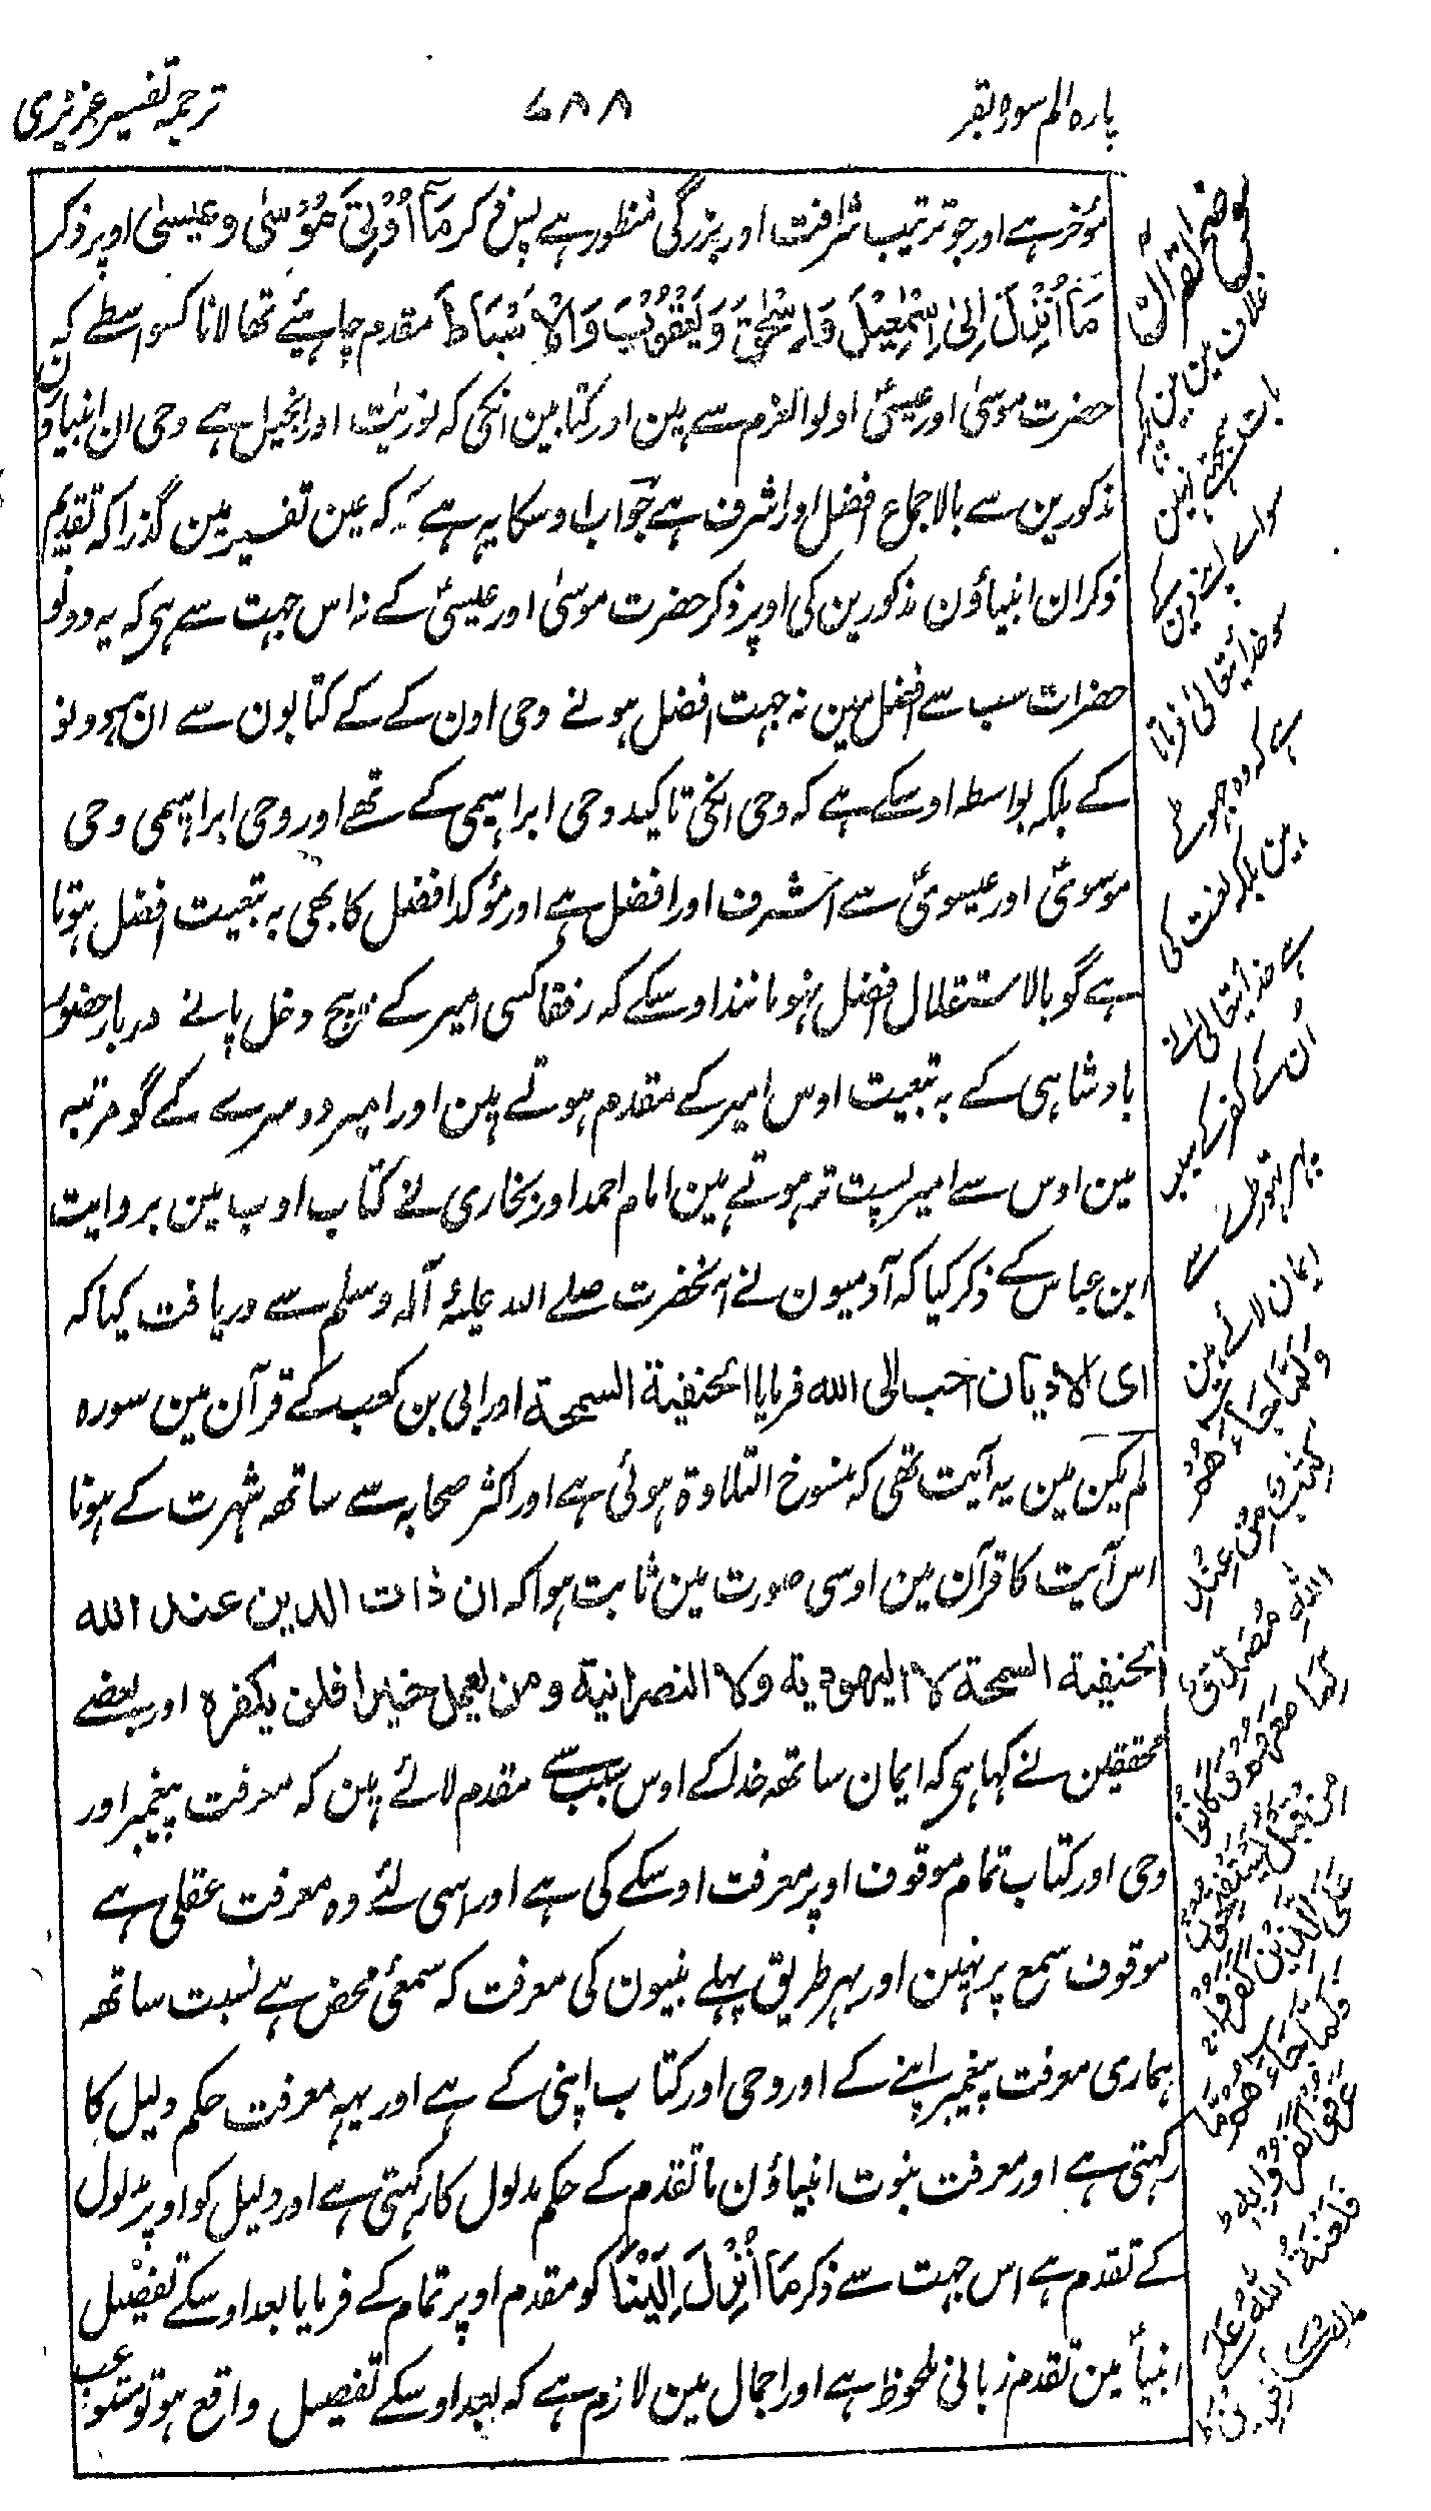 پارہ الم سورہ بقر
۷۸۸
ترجمہ تفسیر عزیزی
مؤخر ہے اور جو ترتیب شرافت اور بزرگی منظور ہے پس ذکر مَآ اُوْتِیَ مُوْسٰی وعیسٰی اوپر ذکر
مَآ اُنْزِلَ اِلٰی اِسْمٰعِیْلَ وَاِسْحٰقَ وَیَعْقُوْبَ وَالْاَسْبَاطَ مقدم چاہیئے تھا لانا کسواسطے کہ
حضرت موسیٰ اور عیسیٰ اولوالعزم سے ہین اور کتابین انکی کہ توریت اور انجیل ہے وحی ان انبیاؤن
مذکورین سے بالاجماع افضل اور اشرف ہے جواب اوسکا یہ ہے کہ عین تفسیر مین گذرا کہ تقدیم
ذکر ان انبیاؤن مذکورین کی اوپر ذکر حضرت موسیٰ اور عیسیٰ کے نہ اس جہت سے ہی کہ یہ دونو
حضرات سب سے افضل ہین نہ جہت افضل ہونے وحی اون کے کے کتابون سے ان ہر دونو
کے بلکہ بواسطہ اوسکے ہے کہ وحی انکی تاکید وحی ابراہیمی کے تھے اور وحی ابراہیمی وحی
موسویؑ اور عیسویؑ سے اشرف اور افضل ہے اور مؤکد افضل کا بھی بہ تبعیت افضل ہوتا
ہے گو بالاستقلال افضل نہو مانند اوسکے کہ رفقا کسی امیر کے بیچ دخل پانے دربار حضور
بادشاہی کے بہ تبعیت اوس امیر کے مقدم ہوتے ہین اور امیر دوسرے کے گو مرتبہ
مین اوس سے امیر پست تر ہوتے ہین امام احمد اور بخاری نے کتاب ادب مین بروایت
ابن عباس کے ذکر کیا کہ آدمیون نے آنحضرت صلے اللہ علیہ وآلہ وسلم سے دریافت کیا کہ
ای الادیان احب الی الله فرمایا الحنفیة السمحة اور ابی بن کعب کے قرآن مین سورہ
لم یکن مین یہ آیت تھی کہ منسوخ التلاوۃ ہوئی ہے اور اکثر صحابہ سے ساتھ شہرت کے ہونا
اس آیت کا قرآن مین اوسی صورت مین ثابت ہوا کہ ان ذات الدین عند الله
الحنیفیة السمحة لا الیهودیة ولا النصرانیة ومن یعمل خیرا فلن یکفره اور بعضے
محققین نے کہا ہی کہ ایمان ساتھ خدا کے اوس سبب سے مقدم لائے ہین کہ معرفت پیغمبر اور
وحی اور کتاب تمام موقوف اوپر معرفت اوسکے کی ہے اور اسی لئے وہ معرفت عقلی ہے
موقوف سمع پر نہین اور بہر طریق پہلے نبیون کی معرفت کہ سمعی محض ہے نسبت ساتھ
ہماری معرفت پیغمبر اپنے کے اور وحی اور کتاب اپنی کے ہے اور یہہ معرفت حکم دلیل کا
رکہتی ہے اور معرفت نبوت انبیاؤن ماتقدم کے حکم مدلول کا رکہتی ہے اور دلیل کو اوپر مدلول
کے تقدم ہے اس جہت سے ذکر مَآ اُنْزِلَ اِلَیْنَا کو مقدم اوپر تمام کے فرمایا بعد اوسکے تفصیل
انبیاؑ مین تقدم زمانی ملحوظ ہے اور اجمال مین لازم ہے کہ بعد اوسکے تفصیل واقع ہو تو مستوعب
موضح القرآن
غلاف ہین
بات سمجھتے نہین
سواے اپنے دین کے
سو خدایتعالیٰ فرماتا
ہے کہ وہ جھوٹے
ہین بلکہ لعنت کی
ہے خدایتعالیٰ نے
اُن کے کفر کے سبب
پہر تھوڑے سے
ایمان لاتے ہین
وَلَمَّا جَآءَهُمْ
كِتٰبٌ مِّنْ عِنْدِ
اللّٰهِ مُصَدِّقٌ
لِّمَا مَعَهُمْ وَكَانُوْا
مِنْ قَبْلُ يَسْتَفْتِحُوْنَ
عَلَى الَّذِيْنَ كَفَرُوْا
فَلَمَّا جَآءَهُمْ مَّا
عَرَفُوْا كَفَرُوْا بِهٖ
فَلَعْنَةُ اللّٰهِ عَلَى
الْكٰفِرِيْنَ